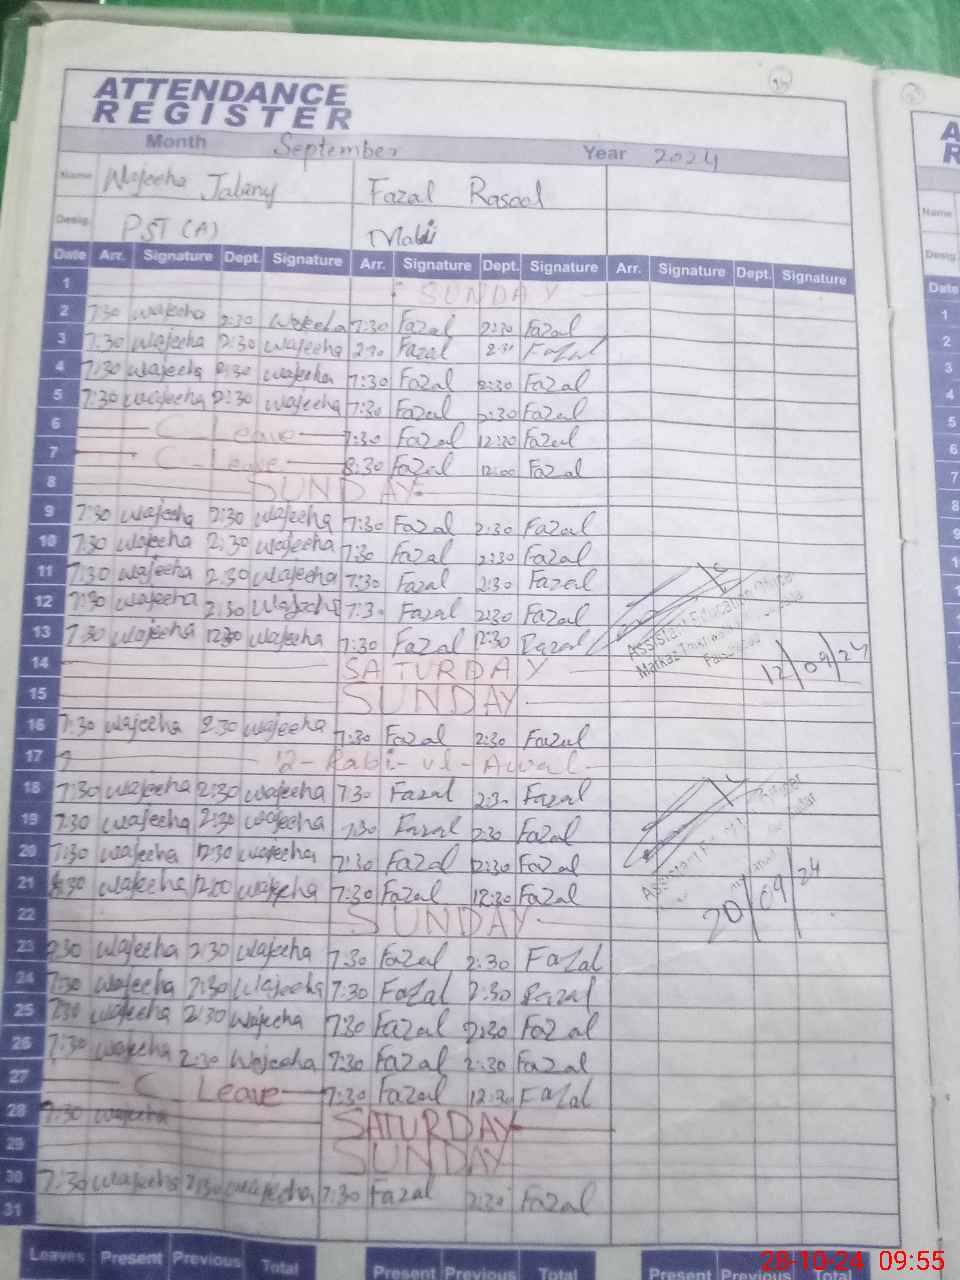 ATTENDANCE
REGISTER
Month September Year 2024
Name Wajeeha Fazal Rasool
Desig. PST (A)
Date Arr. Signature Dept. Signature Arr. Signature Dept. Signature Arr. Signature Dept. Signature
1 SUNDAY
2 7:30 Wajeeha 2:30 Wajeeha 7:30 Fazal 2:30 Fazal
3 7:30 Wajeeha 2:30 Wajeeha 2:30 Fazal 2:30 Fazal
4 7:30 Wajeeha 2:30 Wajeeha 7:30 Fazal 2:30 Fazal
5 7:30 Wajeeha 2:30 Wajeeha 7:30 Fazal 2:30 Fazal
6 C-Leave 7:30 Fazal 12:30 Fazal
7 C-Leave 8:30 Fazal 12:00 Fazal
8 SUNDAY
9 7:30 Wajeeha 2:30 Wajeeha 7:30 Fazal 2:30 Fazal
10 7:30 Wajeeha 2:30 Wajeeha 7:30 Fazal 2:30 Fazal
11 7:30 Wajeeha 2:30 Wajeeha 7:30 Fazal 2:30 Fazal
12 7:30 Wajeeha 2:30 Wajeeha 7:30 Fazal 2:30 Fazal
Assistant Education Officer
13 7:30 Wajeeha 12:30 Wajeeha 7:30 Fazal 12:30 Fazal
Markaz
14 SATURDAY 12/09/24
15 SUNDAY
16 7:30 Wajeeha 2:30 Wajeeha 7:30 Fazal 2:30 Fazal
17 12-Rabi-ul-Awal
18 7:30 Wajeeha 2:30 Wajeeha 7:30 Fazal 2:30 Fazal
19 7:30 Wajeeha 2:30 Wajeeha 7:30 Fazal 2:30 Fazal
20 7:30 Wajeeha 12:30 Wajeeha 7:30 Fazal 12:30 Fazal
Assistant
21 8:30 Wajeeha 12:00 Wajeeha 7:30 Fazal 12:30 Fazal
22 SUNDAY 20/09/24
23 7:30 Wajeeha 2:30 Wajeeha 7:30 Fazal 2:30 Fazal
24 7:30 Wajeeha 2:30 Wajeeha 7:30 Fazal 2:30 Fazal
25 7:30 Wajeeha 2:30 Wajeeha 7:30 Fazal 2:30 Fazal
26 7:30 Wajeeha 2:30 Wajeeha 7:30 Fazal 2:30 Fazal
27 C Leave 7:30 Fazal 12:30 Fazal
28 7:30 Wajeeha SATURDAY
29 SUNDAY
30 7:30 Wajeeha 2:30 Wajeeha 7:30 Fazal 2:30 Fazal
31
Leaves Present Previous Total Present Previous Total Present Previous Total
28-10-24 09:55
A
R
Name
Desig.
Date
1
2
3
4
5
6
7
8
9